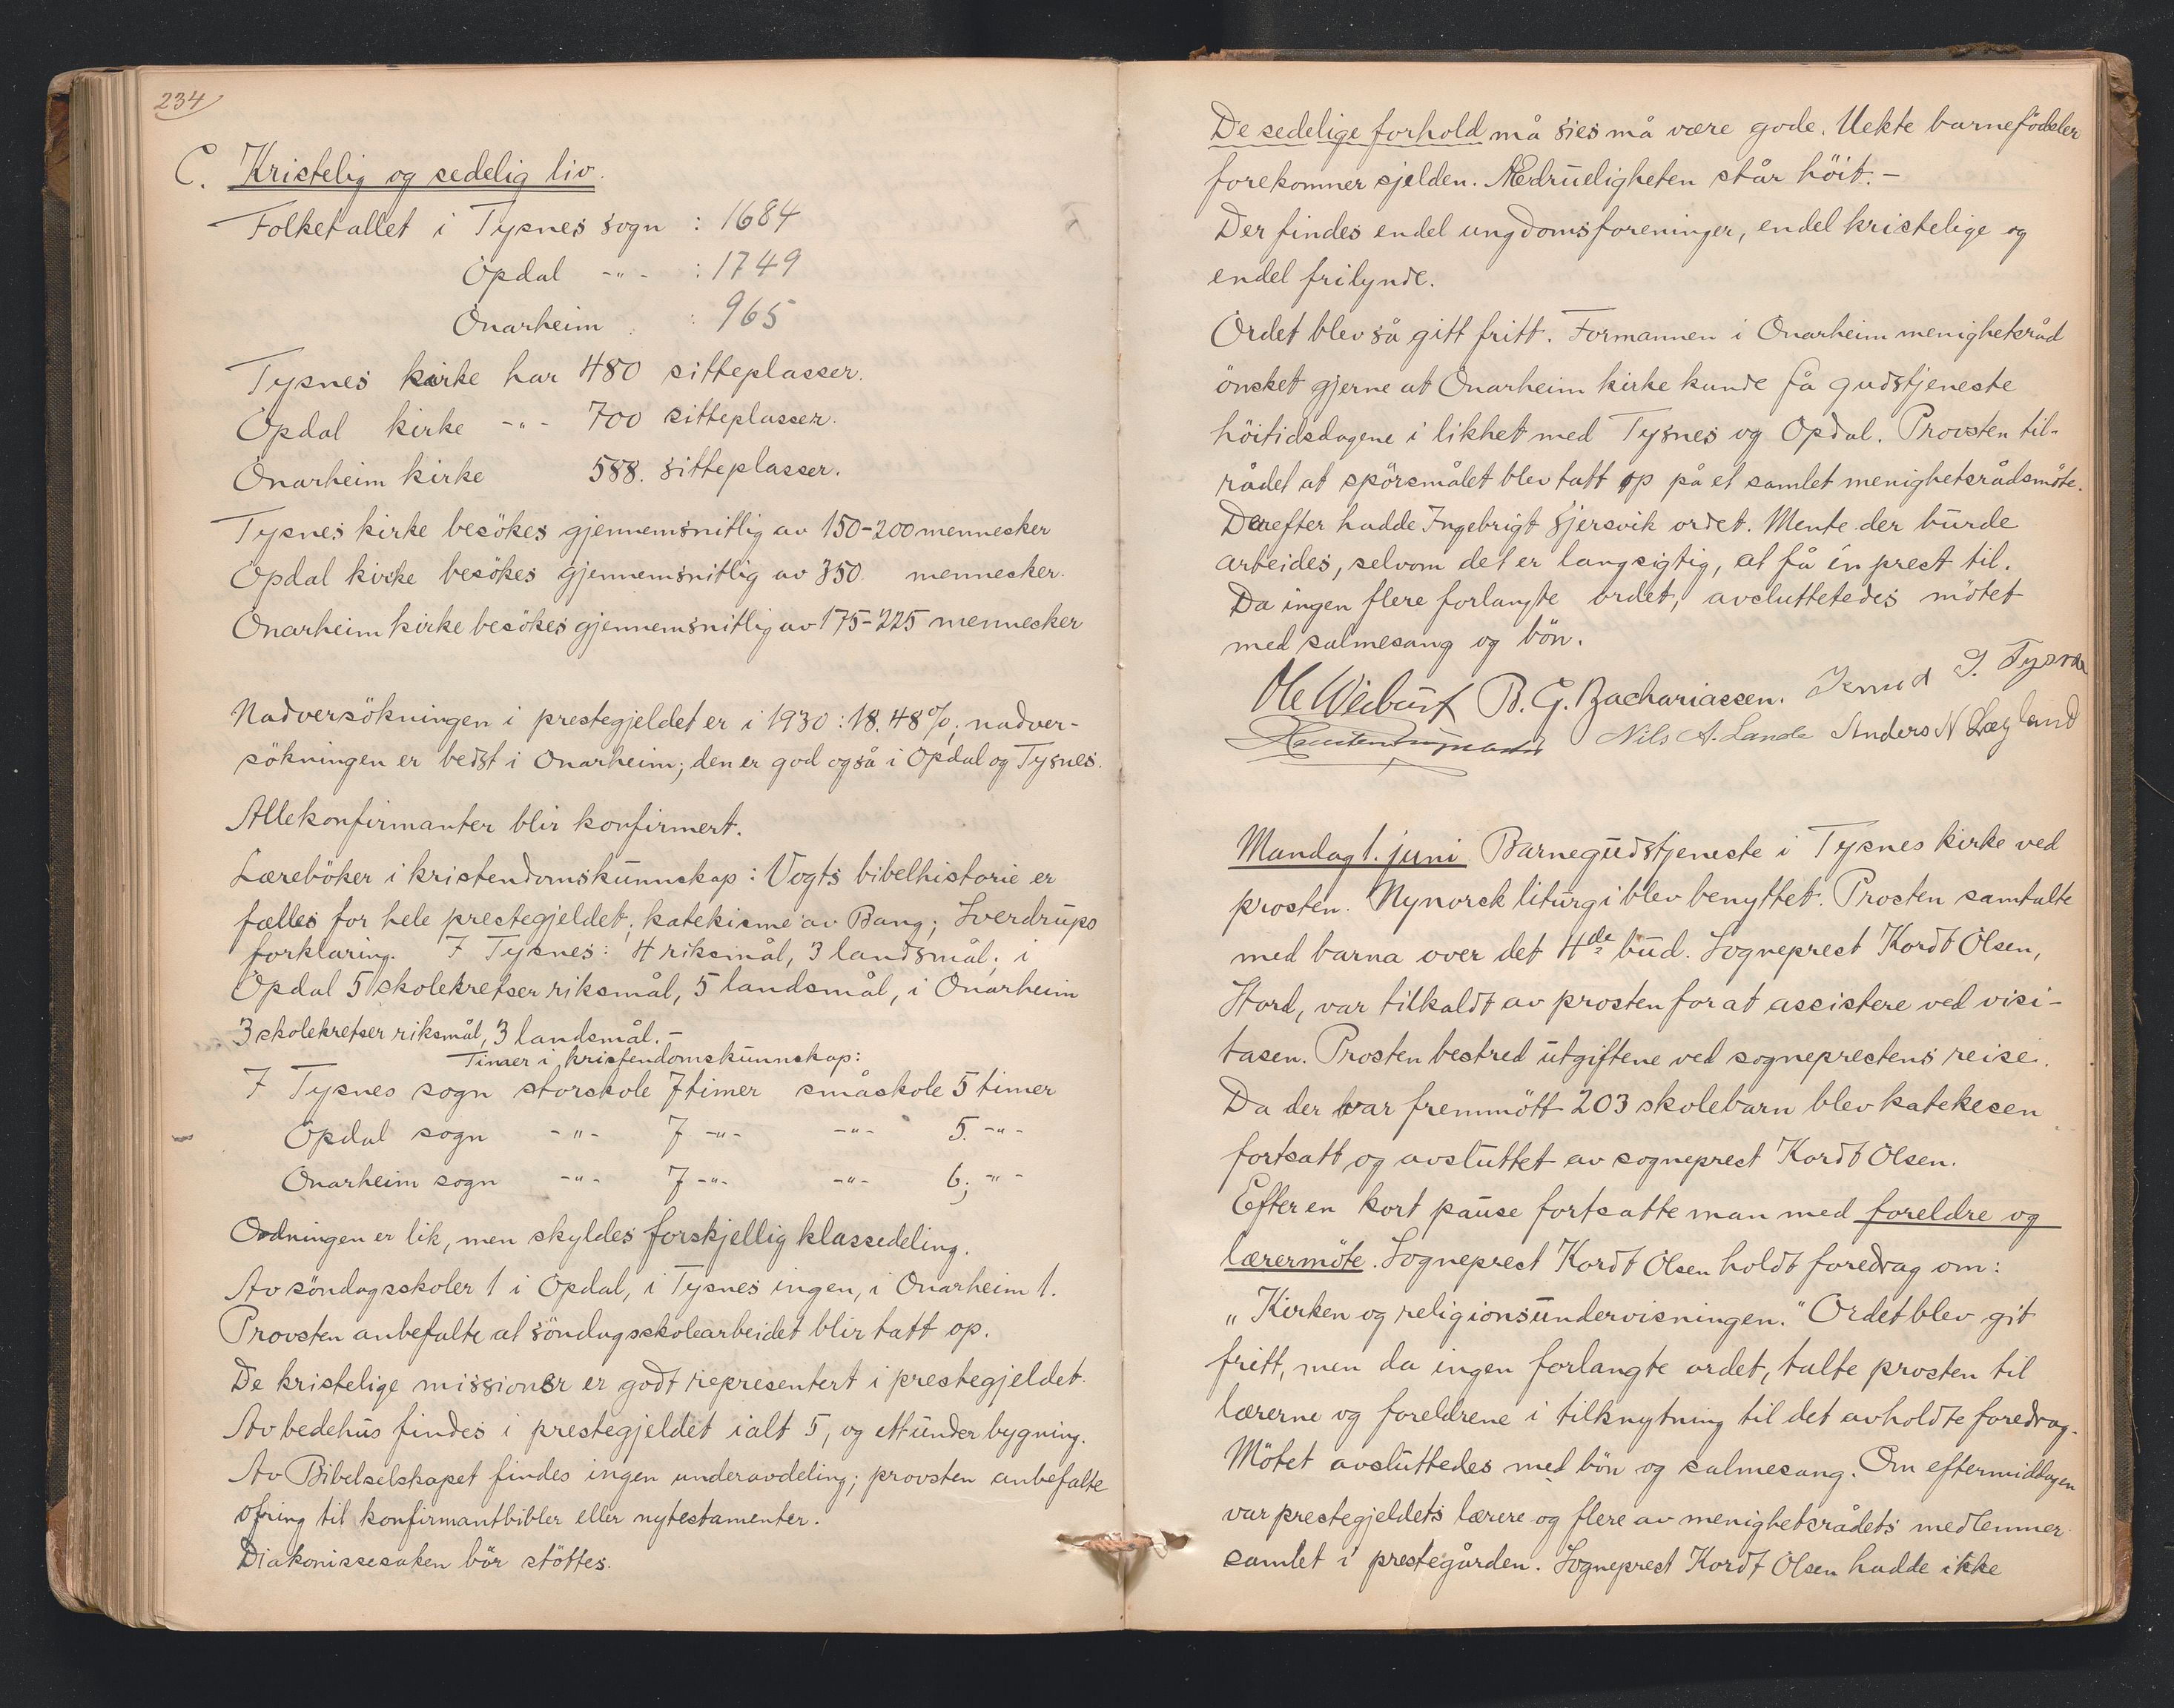 234
C. Kristelig og sedelig liv.
Folketallet i Tysnes sogn : 1684
Opdal -"- : 1749
Onarheim : 965
Tysnes kirke har 480 sitteplasser.
Opdal kirke -"- 700 sitteplasser.
Onarheim kirke 588. sitteplasser.
Tysnes kirke besökes gjennemsnitlig av 150-200 mennesker
Opdal kirke besökes gjennemsnitlig av 350 mennesker.
Onarheim kirke besökes gjennemsnitlig av 175-225 mennesker
Nadversökningen i prestegjeldet er i 1930 : 18.48%; nadver-
sökningen er bedst i Onarheim; den er god også i Opdal og Tysnes.
Alle konfirmanter blir konfirmert.
Læreböker i kristendomskunnskap : Vogts bibelhistorie er
fælles for hele prestegjeldet; katekisme av Bang; Sverdrups
forklaring. I Tysnes: 4 riksmål, 3 landsmål; i
Opdal 5 skolekretser riksmål, 5 landsmål, i Onarheim
3 skolekretser riksmål, 3 landsmål.-
Timer i kristendomskunnskap:
I Tysnes sogn storskole 7 timer småskole 5 timer
Opdal sogn -"- 7 -"- -"- 5. -"-
Onarheim sogn -"- 7 -"- -"- 6; -"-
Ordningen er lik, men skyldes forskjellig klassedeling.
Av söndagsskoler 1 i Opdal, i Tysnes ingen, i Onarheim 1.
Provsten anbefalte at söndagsskolearbeidet blir tatt op.
De kristelige missioner er godt representert i prestegjeldet.
Av bedehus findes i prestegjeldet ialt 5, og ett under bygning.
Av Bibelselskapet findes ingen underavdeling; provsten anbefalte
ofring til konfirmantbibler eller nytestamenter.
Diakonissesaken bör stöttes.
De sedelige forhold må sies må være gode. Uekte barnefödsler
forekommer sjelden. Ædrueligheten står höit.-
Der findes endel ungdomsforeninger, endel kristelige og
endel frilynde.
Ordet blev så gitt fritt. Formannen i Onarheim menighetsråd
önsket gjerne at Onarheim kirke kunde få gudstjeneste
höitidsdagene i likhet med Tysnes og Opdal. Provsten til-
rådet at spörsmålet blev tatt op på et samlet menighetsrådsmöte.
Derefter hadde Ingebrigt Gjersvik ordet. Mente der burde
arbeides, selvom det er langsigtig, at få en prest til.
Da ingen flere forlangte ordet, avsluttetedes mötet
med salmesang og bön.
B. G. Zachariassen. Knud I. Tysnes
Nils A. Lande Anders N Lægland
Mandag 1. juni Barnegudstjeneste i Tysnes kirke ved
prosten. Nynorsk liturgi blev benyttet. Prosten samtalte
med barna over det 4de bud. Sogneprest Kordt Olsen,
Stord, var tilkaldt av prosten for at assistere ved visi-
tasen. Prosten bestred utgiftene ved sogneprestens reise.
Da der var fremmött 203 skolebarn blev katekesen
fortsatt og avsluttet av sogneprest Kordt Olsen.
Efter en kort pause fortsatte man med foreldre og
lærermöte. Sogneprest Kordt Olsen holdt foredrag om:
„Kirken og religionsundervisningen." Ordet blev git
fritt, men da ingen forlangte ordet, talte prosten til
lærerne og foreldrene i tilknytning til det avholdte foredrag.
Mötet avsluttedes med bön og salmesang. Om eftermiddagen
var prestegjeldets lærere og flere av menighetsrådets medlemmer
samlet i prestegården. Sogneprest Kordt Olsen hadde ikke